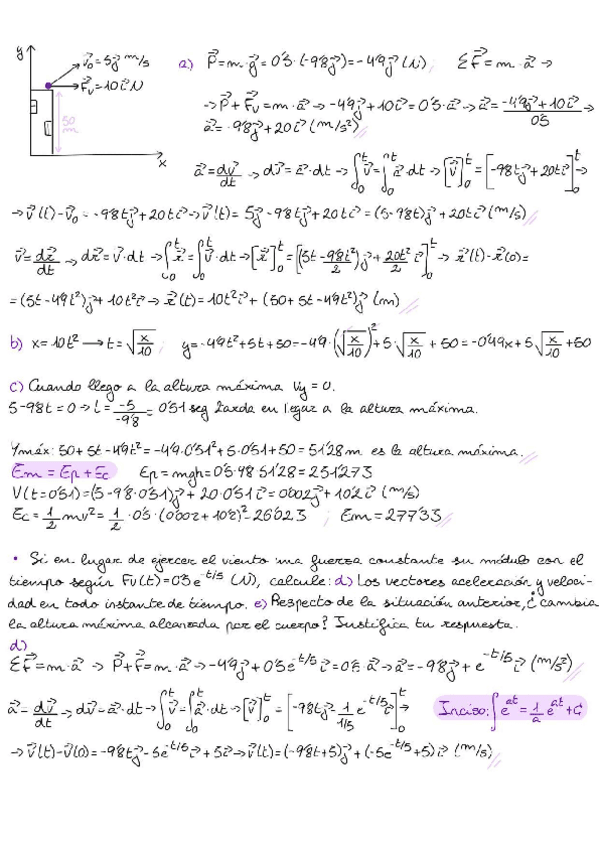 y
v⃗₀ = 5j⃗ m/s
F⃗v = 10i⃗ N
50 m
x
a) P⃗ = m·g⃗ = 0'5·(-9'8j⃗) = -4'9j⃗ (N) ; ΣF⃗ = m·a⃗ →
→ P⃗ + F⃗v = m·a⃗ → -4'9j⃗ + 10i⃗ = 0'5·a⃗ → a⃗ = (-4'9j⃗ + 10i⃗)/0'5 →
a⃗ = -9'8j⃗ + 20i⃗ (m/s²)
a⃗ = dv⃗/dt → dv⃗ = a⃗·dt → ∫₀ᵗ v⃗ = ∫₀ᵗ a⃗·dt → [v⃗]₀ᵗ = [-9'8tj⃗ + 20ti⃗]₀ᵗ →
→ v⃗(t) - v⃗₀ = -9'8tj⃗ + 20ti⃗ → v⃗(t) = 5j⃗ - 9'8tj⃗ + 20ti⃗ = (5-9'8t)j⃗ + 20ti⃗ (m/s)
v⃗ = dr⃗/dt → dr⃗ = v⃗·dt → ∫₀ᵗ r⃗ = ∫₀ᵗ v⃗·dt → [r⃗]₀ᵗ = [(5t - 9'8t²/2)j⃗ + 20t²/2 i⃗]₀ᵗ → r⃗(t) - r⃗(0) =
= (5t - 4'9t²)j⃗ + 10t²i⃗ → r⃗(t) = 10t²i⃗ + (50 + 5t - 4'9t²)j⃗ (m)
b) x = 10t² → t = √(x/10) ; y = -4'9t² + 5t + 50 = -4'9·(√(x/10))² + 5·√(x/10) + 50 = -0'49x + 5√(x/10) + 50
c) Cuando llego a la altura máxima Vy = 0.
5 - 9'8t = 0 → t = -5/-9'8 = 0'51 seg tarda en llegar a la altura máxima.
Ymáx: 50 + 5t - 4'9t² = -4'9·0'51² + 5·0'51 + 50 = 51'28 m es la altura máxima.
Em = Ep + Ec Ep = mgh = 0'5·9'8·51'28 = 251'273
V(t=0'51) = (5 - 9'8·0'51)j⃗ + 20·0'51i⃗ = 0'002j⃗ + 10'2i⃗ (m/s)
Ec = 1/2 mv² = 1/2·0'5·(0'002 + 10'2)² = 26'023 ; Em = 277'33
• Si en lugar de ejercer el viento una fuerza constante su módulo con el
tiempo según Fv(t) = 0'5e^(-t/5) (N), calcule: d) Los vectores aceleración y veloci-
dad en todo instante de tiempo. e) Respecto de la situación anterior, ¿cambia
la altura máxima alcanzada por el cuerpo? Justifica tu respuesta.
d)
ΣF⃗ = m·a⃗ → P⃗ + F⃗ = m·a⃗ → -4'9j⃗ + 0'5e^(-t/5)i⃗ = 0'5·a⃗ → a⃗ = -9'8j⃗ + e^(-t/5)i⃗ (m/s²)
a⃗ = dv⃗/dt → dv⃗ = a⃗·dt → ∫₀ᵗ v⃗ = ∫₀ᵗ a⃗·dt → [v⃗]₀ᵗ = [-9'8tj⃗ - 1/(1/5) e^(-t/5)i⃗]₀ᵗ → Inciso: ∫e^(at) = 1/a e^(at) + C
→ v⃗(t) - v⃗(0) = -9'8tj⃗ - 5e^(-t/5)i⃗ + 5i⃗ → v⃗(t) = (-9'8t + 5)j⃗ + (-5e^(-t/5) + 5)i⃗ (m/s)